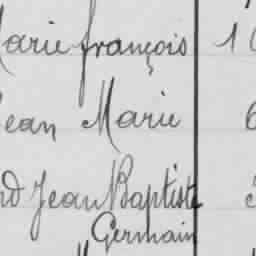 Marie françois 1
Jean Marie 6
nd Jean Baptiste
Germain